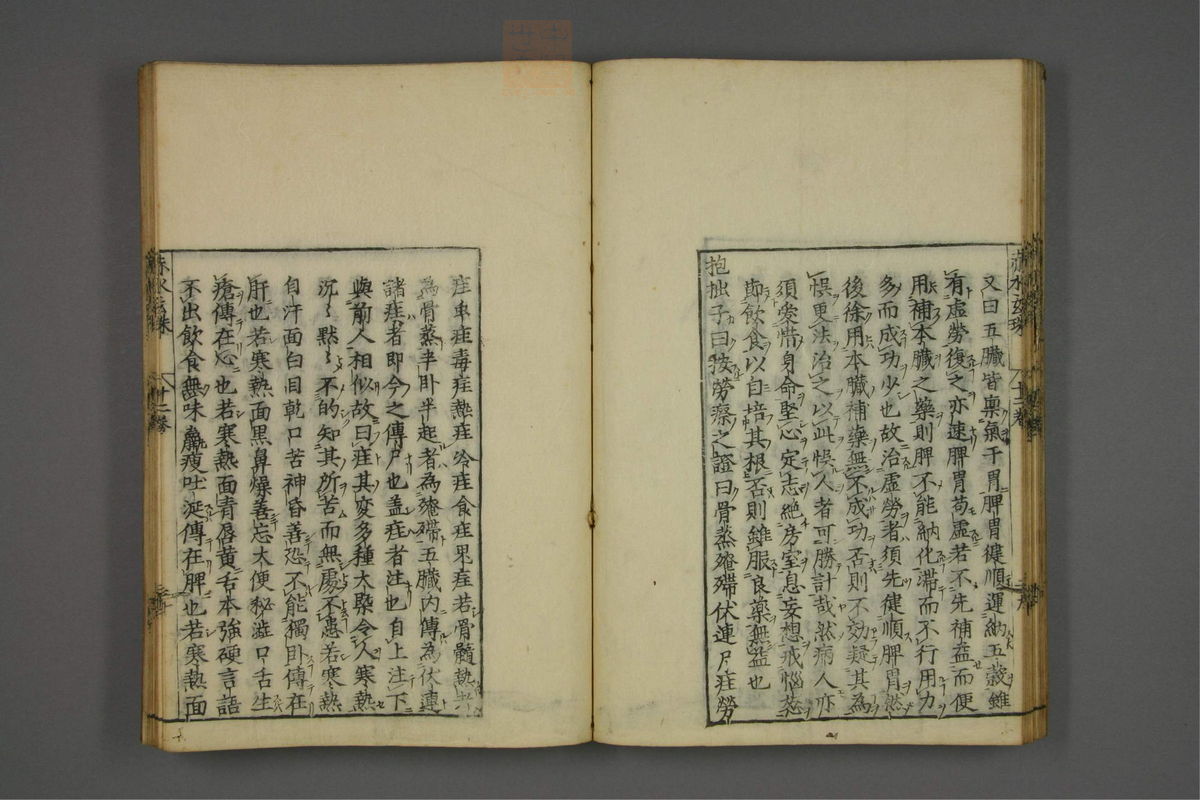 又曰五臓皆禀氣于胃脾胃健順運納五穀雖
有虚勞復之亦速脾胃苟虚若不先補益而便
用補本臓之藥則脾不能納化滞而不行用力
多而成功少也故治虚勞者須先健順脾胃然
後徐用本臓補藥無不成功否則不効疑其為
悞更法治之以此悞人者可勝計哉然病人亦
須愛惜身命堅心定志絶房室息妄想戒惱怒
節飲食以自培其根否則雖服良藥無益也
抱拙子曰按勞瘵之證曰骨蒸殗殜伏連尸疰勞
疰 疰毒疰熱疰冷疰食疰 疰若骨髓熱 
為骨蒸半卧半起者為殗殜五臓内傳為伏連
諸疰者即今之傳尸也盖疰者注也自上注下
與前人相似故曰疰其変多種大槩令人寒熱
沉〻黙〻不的知其所苦而無處不悪若寒熱
自汗面白目乾口苦神昏善恐不能獨卧傳在
肝也若寒熱面黒鼻燥善忘大便秘澁口舌生
瘡傳在心也若寒熱面青唇黄舌本強硬言語
不出飲食無味羸瘦吐涎傳在脾也若寒熱面
赤水玄珠 十二巻